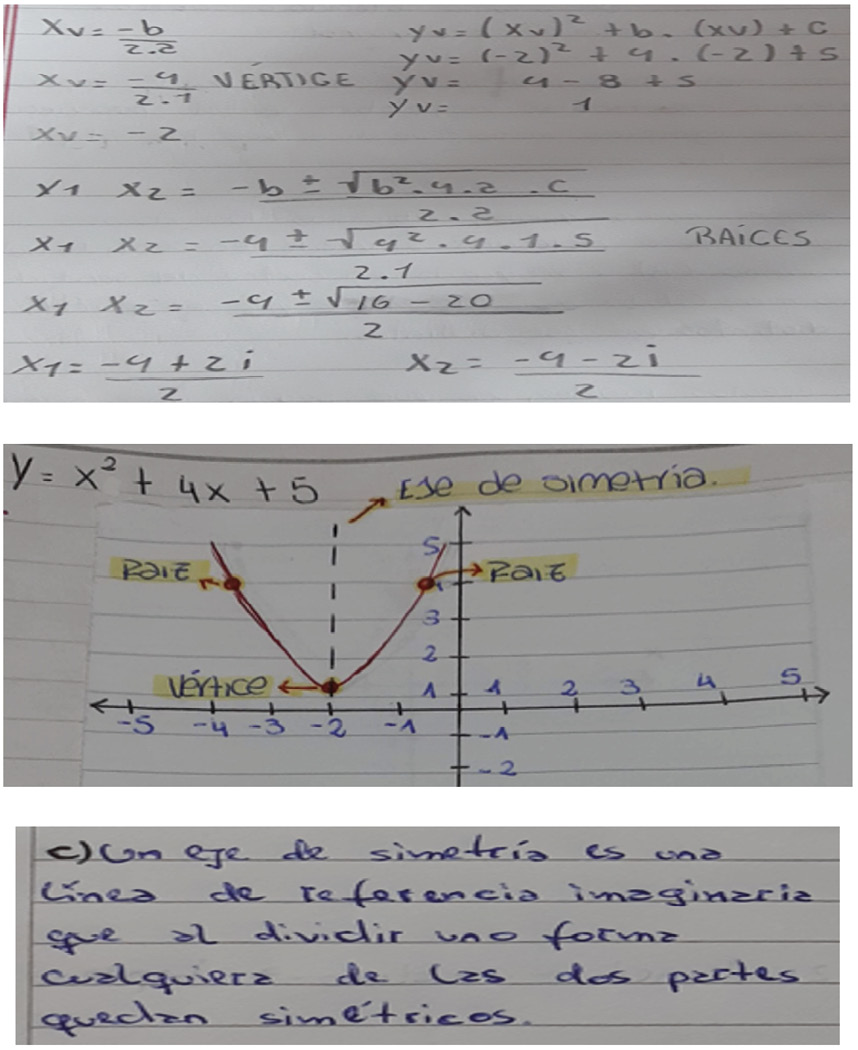 xv = -b / 2.a
yv = (xv)² + b. (xv) + c
yv = (-2)² + 4 . (-2) + 5
xv = -4 / 2.1 VÉRTICE yv = 4 - 8 + 5
yv = 1
xv = -2
x1 x2 = -b ± √b².4.a .c / 2.a
x1 x2 = -4 ± √4².4.1.5 / 2.1 RAÍCES
x1 x2 = -4 ± √16 - 20 / 2
x1 = -4 + 2i / 2 x2 = -4 - 2i / 2
y = x² + 4x + 5
Eje de simetría.
Raiz
Raiz
Vértice
5
3
2
1
-1
-2
-5 -4 -3 -2 -1 1 2 3 4 5
c) Un eje de simetría es una
línea de referencia imaginaria
que al dividir una forma
cualquiera de las dos partes
quedan simétricos.